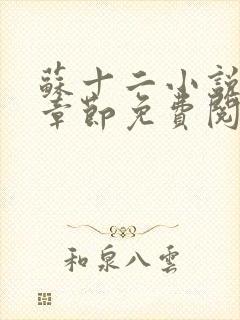 蘇十二小說
章節免費閱
和泉八雲